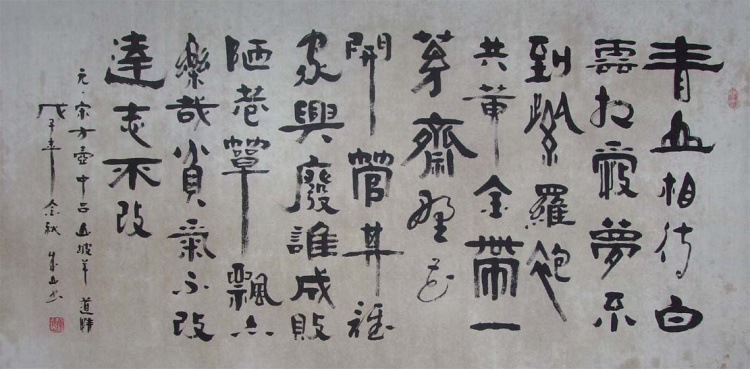 青山相待白
雲相愛夢不
到紫羅袍
共黄金帶一
茅齋野花
開管甚誰
家興廢誰成敗
陋巷簞瓢亦
樂哉貧氣不改
達志不改
元·宋方壶中吕山坡羊道情
戊子年